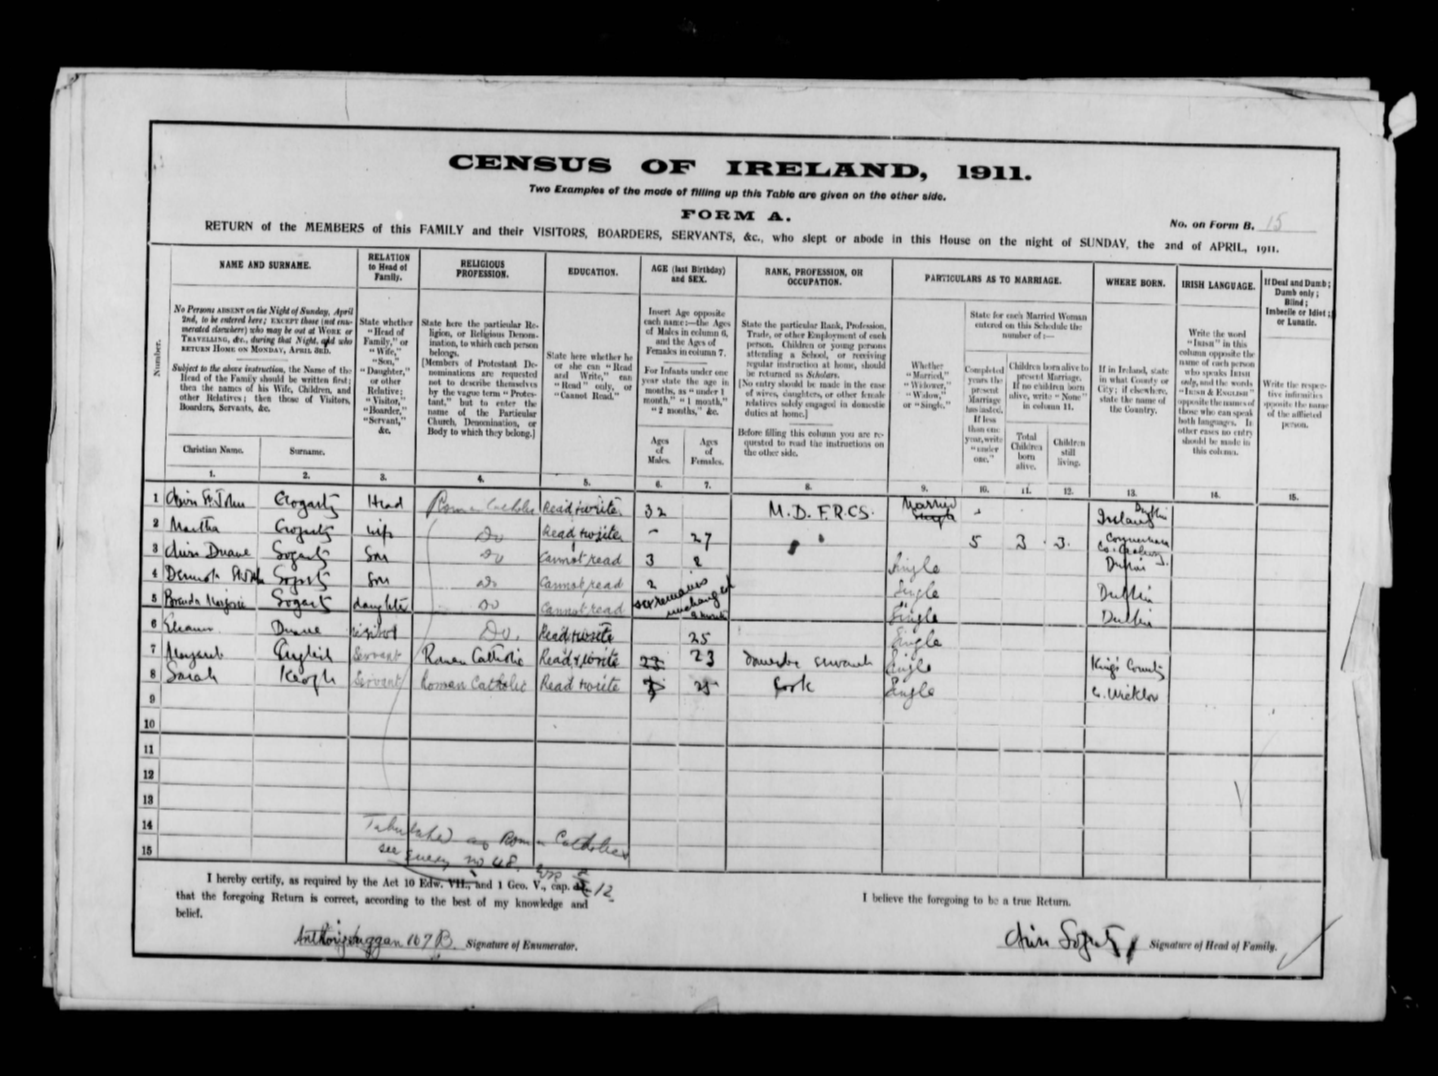 CENSUS OF IRELAND, 1911.
Two Examples of the mode of filling up this Table are given on the other side.
FORM A.
No. on Form B. 15
RETURN of the MEMBERS of this FAMILY and their VISITORS, BOARDERS, SERVANTS, &c., who slept or abode in this House on the night of SUNDAY, the 2nd of APRIL, 1911.
Number.
NAME AND SURNAME.
No Persons ABSENT on the Night of Sunday, April
2nd, to be entered here; EXCEPT those (not enu-
merated elsewhere) who may be out at WORK or
TRAVELLING, &c., during that Night, and who
RETURN HOME ON MONDAY, APRIL 3RD.
Subject to the above instruction, the Name of the
Head of the Family should be written first;
then the names of his Wife, Children, and
other Relatives; then those of Visitors,
Boarders, Servants, &c.
Christian Name. Surname.
1. 2.
RELATION
to Head of
Family.
State whether
"Head of
Family," or
"Wife,"
"Son,"
"Daughter,"
or other
Relative;
"Visitor,"
"Boarder,"
"Servant,"
&c.
3.
RELIGIOUS
PROFESSION.
State here the particular Re-
ligion, or Religious Denom-
ination, to which each person
belongs.
[Members of Protestant De-
nominations are requested
not to describe themselves
by the vague term "Protes-
tant," but to enter the
name of the Particular
Church, Denomination, or
Body to which they belong.]
4.
EDUCATION.
State here whether he
or she can "Read
and Write," can
"Read" only, or
"Cannot Read."
5.
AGE (last Birthday)
and SEX.
Insert Age opposite
each name:—the Ages
of Males in column 6,
and the Ages of
Females in column 7.
For Infants under one
year state the age in
months, as "under 1
month," "1 month,"
"2 months," &c.
Ages
of
Males.
Ages
of
Females.
6. 7.
RANK, PROFESSION, OR
OCCUPATION.
State the particular Rank, Profession,
Trade, or other Employment of each
person. Children or young persons
attending a School, or receiving
regular instruction at home, should
be returned as Scholars.
[No entry should be made in the case
of wives, daughters, or other female
relatives solely engaged in domestic
duties at home.]
Before filling this column you are re-
quested to read the instructions on
the other side.
8.
PARTICULARS AS TO MARRIAGE.
Whether
"Married,"
"Widower,"
"Widow,"
or "Single."
9.
State for each Married Woman
entered on this Schedule the
number of:—
Completed
years the
present
Marriage
has lasted.
If less
than one
year, write
"under
one."
10.
Children born alive to
present Marriage.
If no children born
alive, write "None"
in column 11.
Total
Children
born
alive.
Children
still
living.
11. 12.
WHERE BORN.
If in Ireland, state
in what County or
City; if elsewhere,
state the name of
the Country.
13.
IRISH LANGUAGE.
Write the word
"IRISH" in this
column opposite the
name of each person
who speaks IRISH
only, and the words
"IRISH & ENGLISH"
opposite the names of
those who can speak
both languages. In
other cases no entry
should be made in
this column.
14.
If Deaf and Dumb;
Dumb only;
Blind;
Imbecile or Idiot;
or Lunatic.
Write the respec-
tive infirmities
opposite the name
of the afflicted
person.
15.
1 St. John Gogarty Head Roman Catholic Read & write 32 M.D. F.R.C.S. Married Ireland Dublin
2 Martha Gogarty wife Do Read & write 27 5 3 3
3 Duane Gogarty Son Do Cannot read 3 Single Dublin
4 Dermot Gogarty Son Do Cannot read 2 Single Dublin
5 Brenda Marjorie Gogarty daughter Do Cannot read sex remains unchanged Single Dublin
6 Duane visitor Do. Read & write 25 Single
7 Margaret English Servant Roman Catholic Read & write 23 23 domestic servant Single Kings County
8 Sarah Keogh Servant Roman Catholic Read & write 25 Cook Single Co. Wicklow
9
10
11
12
13
14
15
Tabulated as Roman Catholics
see query no 48.
I hereby certify, as required by the Act 10 Edw. VII., and 1 Geo. V., cap.
that the foregoing Return is correct, according to the best of my knowledge and
belief.
107 B. Signature of Enumerator.
I believe the foregoing to be a true Return.
Gogarty Signature of Head of Family.